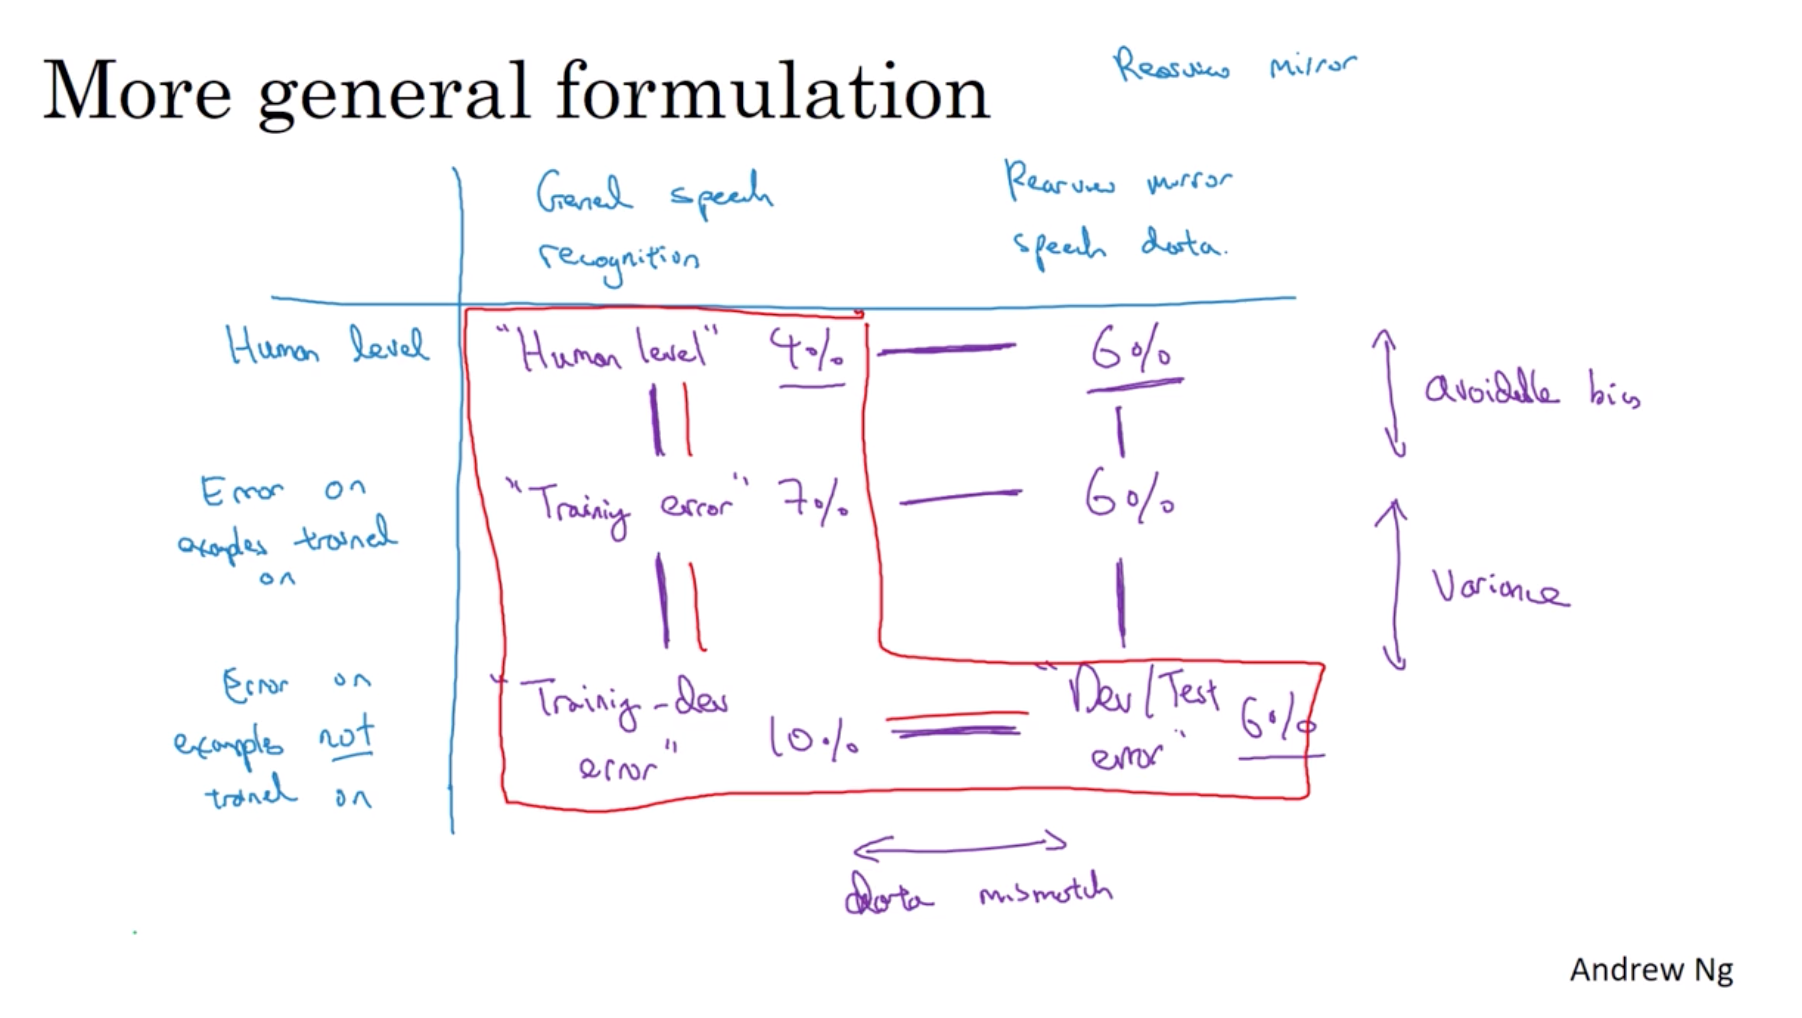 More general formulation
Rearview mirror
General speech
recognition
Rearview mirror
speech data.
Human level
"Human level" 4%
6%
avoidable bias
Error on
examples trained
on
"Training error" 7%
6%
Variance
Error on
examples not
trained on
"Training-dev
error"
10%
"Dev/Test
error"
6%
data mismatch
Andrew Ng